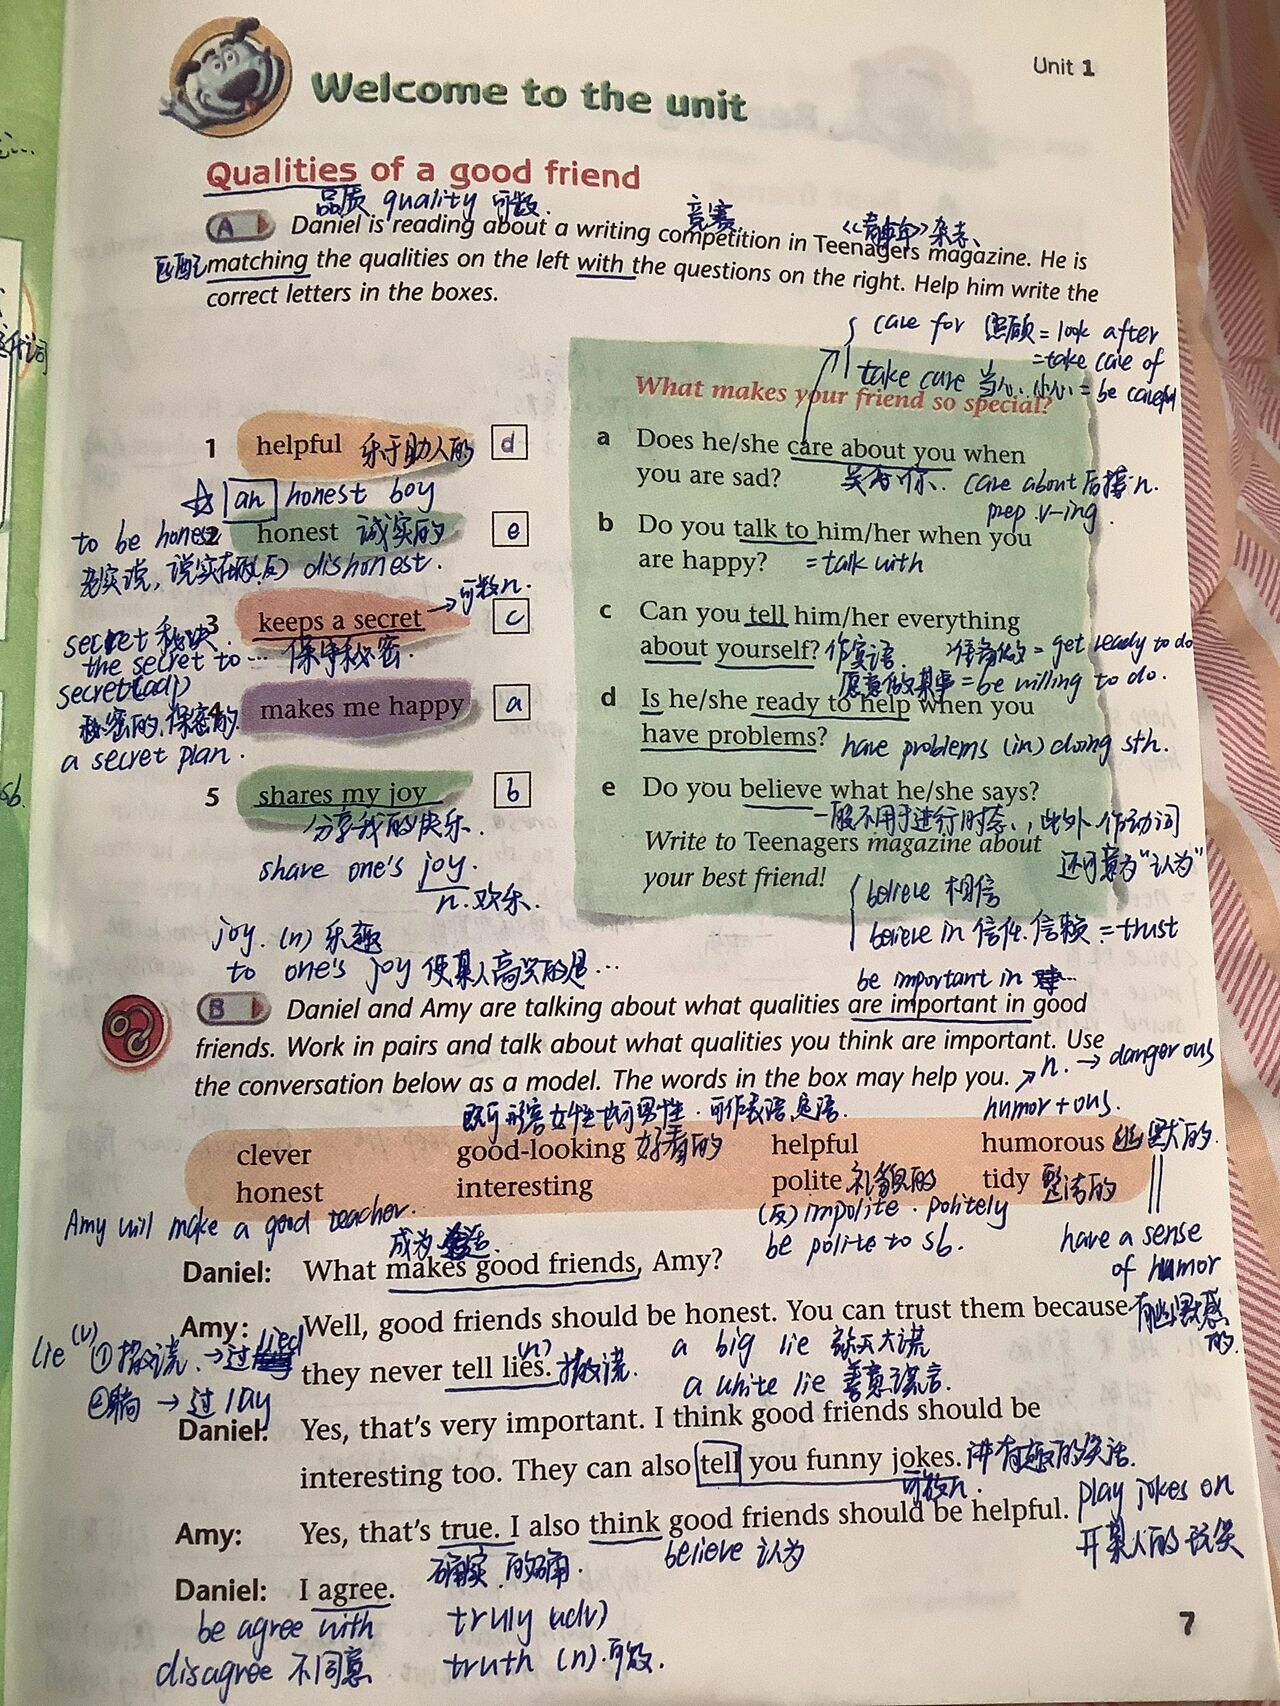 Unit 1
Welcome to the unit
Qualities of a good friend
品质 quality 可数.
竞赛
《青少年》杂志、
A Daniel is reading about a writing competition in Teenagers magazine. He is
匹配 matching the qualities on the left with the questions on the right. Help him write the
correct letters in the boxes.
care for 照顾 = look after
= take care of
take care 当心、小心 = be careful
What makes your friend so special?
1 helpful 乐于助人的 d
☆ an honest boy
to be honest
2 honest 诚实的 e
老实说, 说实在的 (反) dishonest.
3 keeps a secret → 可数n. c
secret 秘诀
the secret to … 保守秘密.
secret (adj)
4 makes me happy a
秘密的, 保密的
a secret plan.
5 shares my joy b
分享我的快乐.
share one's joy.
n. 欢乐.
joy. (n) 乐趣
to one's joy 使某人高兴的是…
a Does he/she care about you when
you are sad? 关心你. care about 后接 n.
prep v-ing.
b Do you talk to him/her when you
are happy? = talk with
c Can you tell him/her everything
about yourself? 作宾语. 准备做 = get ready to do
愿意做某事 = be willing to do.
d Is he/she ready to help when you
have problems? have problems (in) doing sth.
e Do you believe what he/she says?
一般不用于进行时态,此外作动词
还可意为“认为”
Write to Teenagers magazine about
your best friend!
believe 相信
believe in 信任、信赖 = trust
be important in …
B Daniel and Amy are talking about what qualities are important in good
friends. Work in pairs and talk about what qualities you think are important. Use
the conversation below as a model. The words in the box may help you.
n. → dangerous
既可形容女性也可男性. 可作表语定语.
humor + ous.
clever good-looking 好看的 helpful humorous 幽默的
honest interesting polite 礼貌的 tidy 整洁的
(反) impolite. politely
be polite to sb.
have a sense
of humor
有幽默感
的.
Amy will make a good teacher.
成为
Daniel: What makes good friends, Amy?
Amy: Well, good friends should be honest. You can trust them because
they never tell lies. (n) 撒谎.
lie (v) ① 撒谎. → 过 lied
② 躺 → 过 lay
a big lie 弥天大谎
a white lie 善意谎言.
Daniel: Yes, that's very important. I think good friends should be
interesting too. They can also tell you funny jokes. 讲有趣的笑话.
可数n.
play jokes on
开某人的玩笑
Amy: Yes, that's true. I also think good friends should be helpful.
确实、的确. believe 认为
Daniel: I agree.
be agree with truly (adv)
disagree 不同意 truth (n). 可数.
7